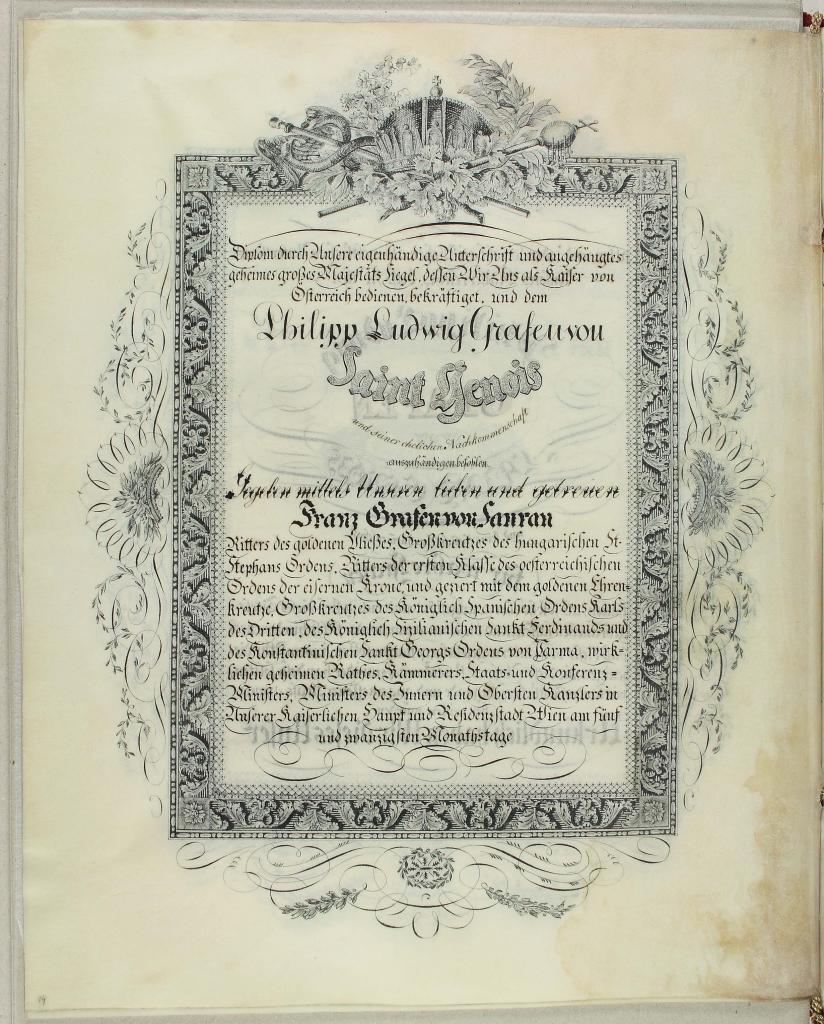 Diplom durch Unsere eigenhändige Unterschrift und angehängtes
geheimes großes Majestäts Siegel, dessen Wir Uns als Kaiser von
Österreich bedienen, bekräftiget, und dem
Philipp Ludwig Grafen von
Saint Genois
und seiner ehelichen Nachkommenschaft
auszuhändigen befohlen.
Gegeben mittels Unseren lieben und getreuen
Franz Grafen von Saurau
Ritters des goldenen Vließes, Großkreutzes des hungarischen St.
Stephans Ordens, Ritters der ersten Klasse des oesterreichischen
Ordens der eisernen Krone, und geziert mit dem goldenen Ehren-
kreutze, Großkreutzes des Königlich Spanischen Ordens Karls
des Dritten, des Königlich Sizilianischen Sankt Ferdinands und
des Konstantinischen Sankt Georgs Ordens von Parma, wirk-
lichen geheimen Rathes, Kämmerers, Staats- und Konferenz-
Ministers, Ministers des Innern und Obersten Kanzlers in
Unserer Kaiserlichen Haupt und Residenzstadt Wien am fünf
und zwanzigsten Monathstage